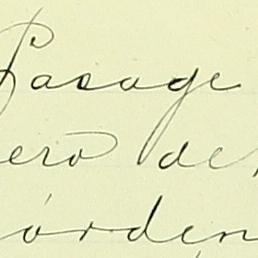 Pasage
ero de
órden